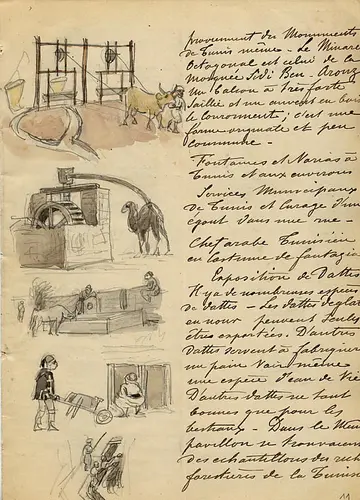 proviennent des Monuments
de Tunis même - Le Minaret
Octogonal est celui de la
Mosquée Sidi Ben-Arouz
Un Balcon à très forte
Saillie et un auvent en bois
le couronnent; c'est une
forme originale et peu
commune -
Fontaines et Norias à
Tunis et aux environs
Services Municipaux
de Tunis et Curage d'un
égout dans une rue -
Chef arabe Tunisien
en Costume de fantazia
Exposition de Dattes
Il y a de nombreuses espèces
de dattes - les dattes de
peuvent seules
être exportées. D'autres
dattes servent à fabriquer
un pain noir même
une espèce d'eau de Vie
D'autres dattes ne sont
bonnes que pour les
bestiaux - Dans le Même
pavillon se trouvaient
des échantillons des
forestières de la Tunisie